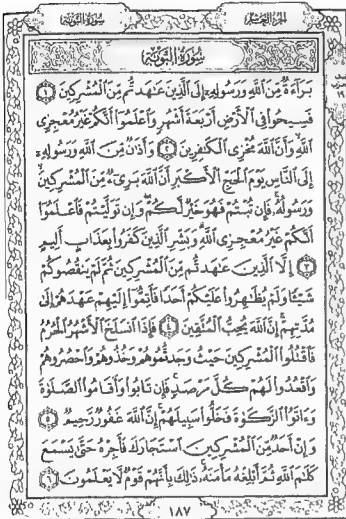 سورة التوبة
الجزء العاشر
سورة التوبة
براءة من الله ورسوله إلى الذين عاهدتم من المشركين ١
فسيحوا في الأرض أربعة أشهر واعلموا أنكم غير معجزي
الله وأن الله مخزي الكافرين ٢ وأذان من الله ورسوله
إلى الناس يوم الحج الأكبر أن الله بريء من المشركين
ورسوله فإن تبتم فهو خير لكم وإن توليتم فاعلموا
أنكم غير معجزي الله وبشر الذين كفروا بعذاب أليم
٣ إلا الذين عاهدتم من المشركين ثم لم ينقصوكم
شيئا ولم يظاهروا عليكم أحدا فأتموا إليهم عهدهم إلى
مدتهم إن الله يحب المتقين ٤ فإذا انسلخ الأشهر الحرم
فاقتلوا المشركين حيث وجدتموهم وخذوهم واحصروهم
واقعدوا لهم كل مرصد فإن تابوا وأقاموا الصلوة
وءاتوا الزكوة فخلوا سبيلهم إن الله غفور رحيم ٥
وإن أحد من المشركين استجارك فأجره حتى يسمع
كلم الله ثم أبلغه مأمنه ذلك بأنهم قوم لا يعلمون ٦
١٨٧